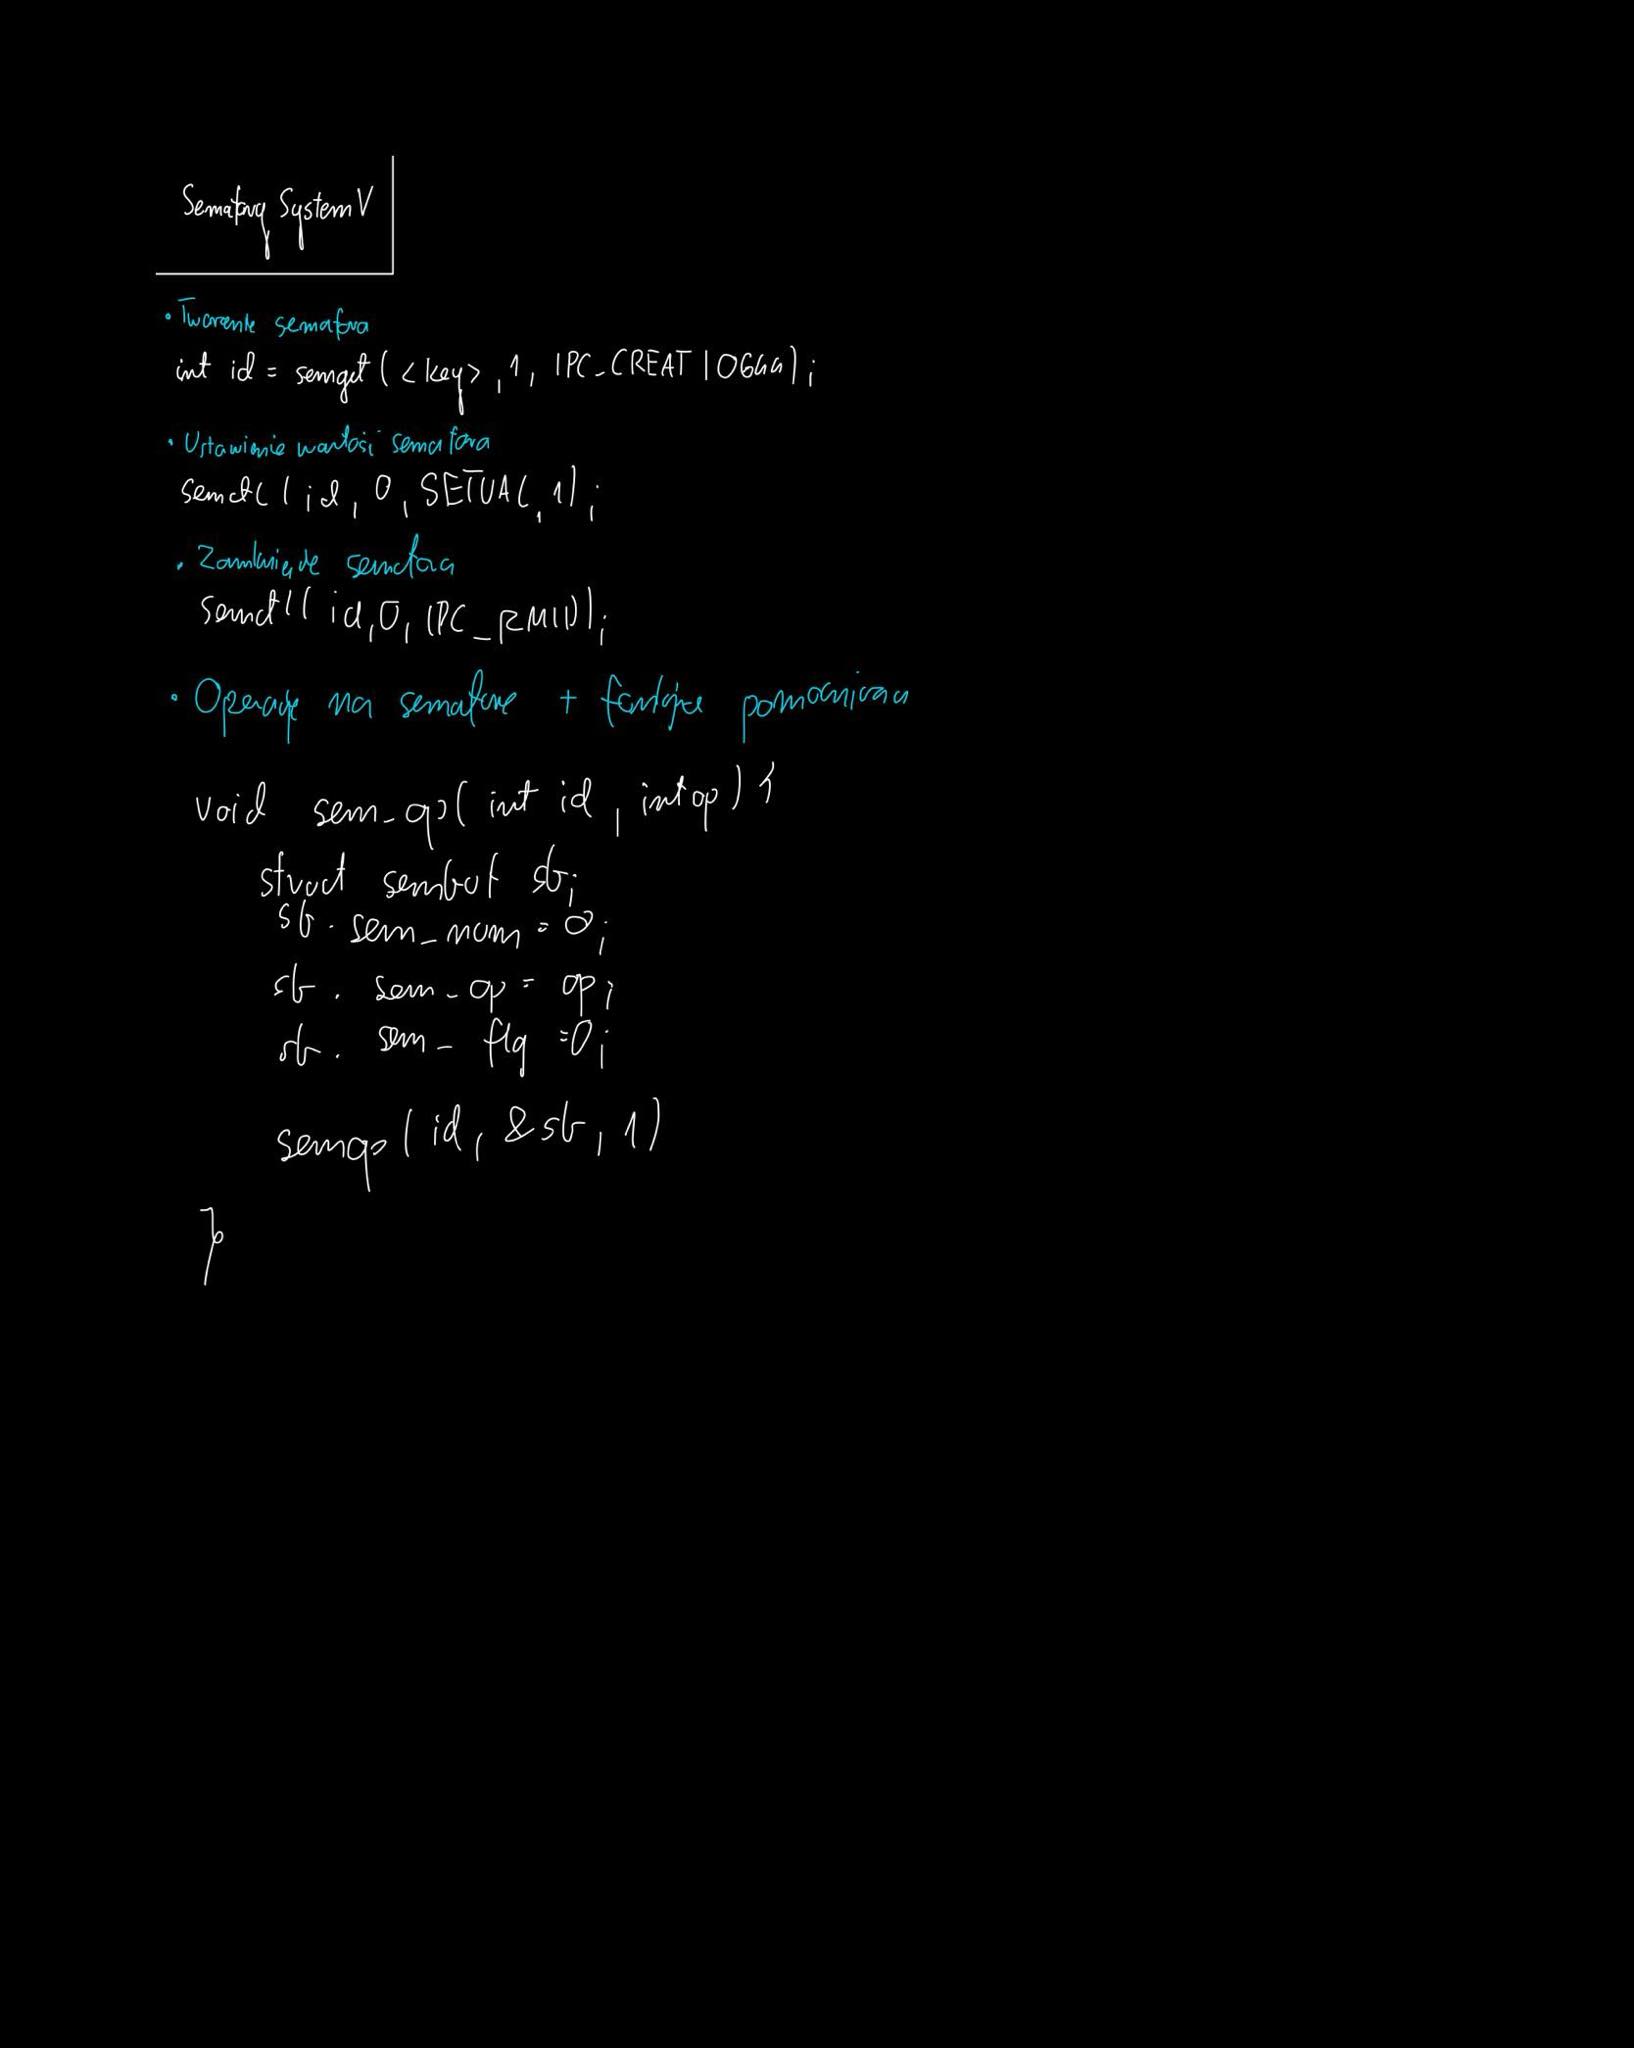 Semafory System V
• Tworzenie semafora
int id = semget(<key>, 1, IPC_CREAT | 0644);
• Ustawienie wartości semafora
semctl(id, 0, SETVAL, 1);
• Zamknięcie semafora
semctl(id, 0, IPC_RMID);
• Operacje na semaforze + funkcja pomocnicza
void sem_op(int id, int op) {
struct sembuf sb;
sb.sem_num = 0;
sb.sem_op = op;
sb.sem_flg = 0;
semop(id, &sb, 1)
}